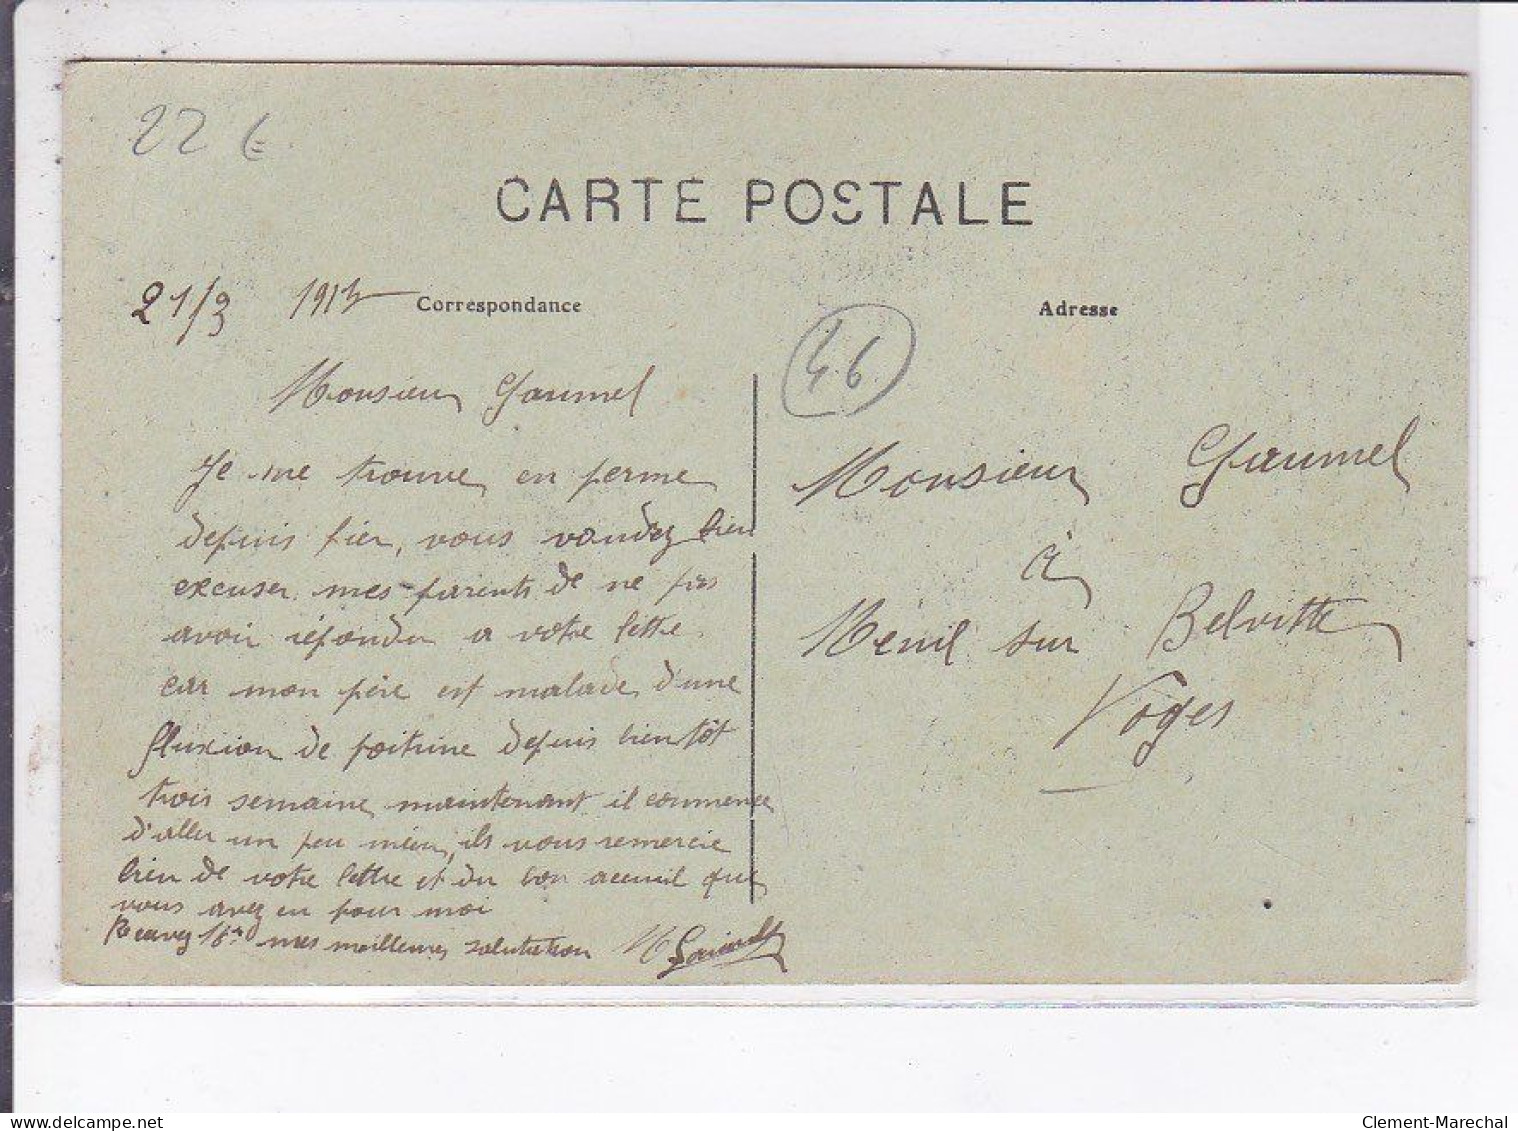 22 €
CARTE POSTALE
21/3 1913
Correspondance
Monsieur Gaumel
Je me trouve en perme
depuis hier, vous voudrez bien
excuser mes parents de ne pas
avoir répondu a votre lettre
car mon père est malade d'une
fluxion de poitrine depuis bientôt
trois semaine maintenant il commence
d'aller un peu mieu, ils vous remercie
bien de votre lettre et du bon acceuil que
vous avez eu pour moi
Recevez Mr mes meilleures salutation
Adresse
46
Monsieur Gaumel
à
Menil sur Belvitte
Voges
Clement-Marechal